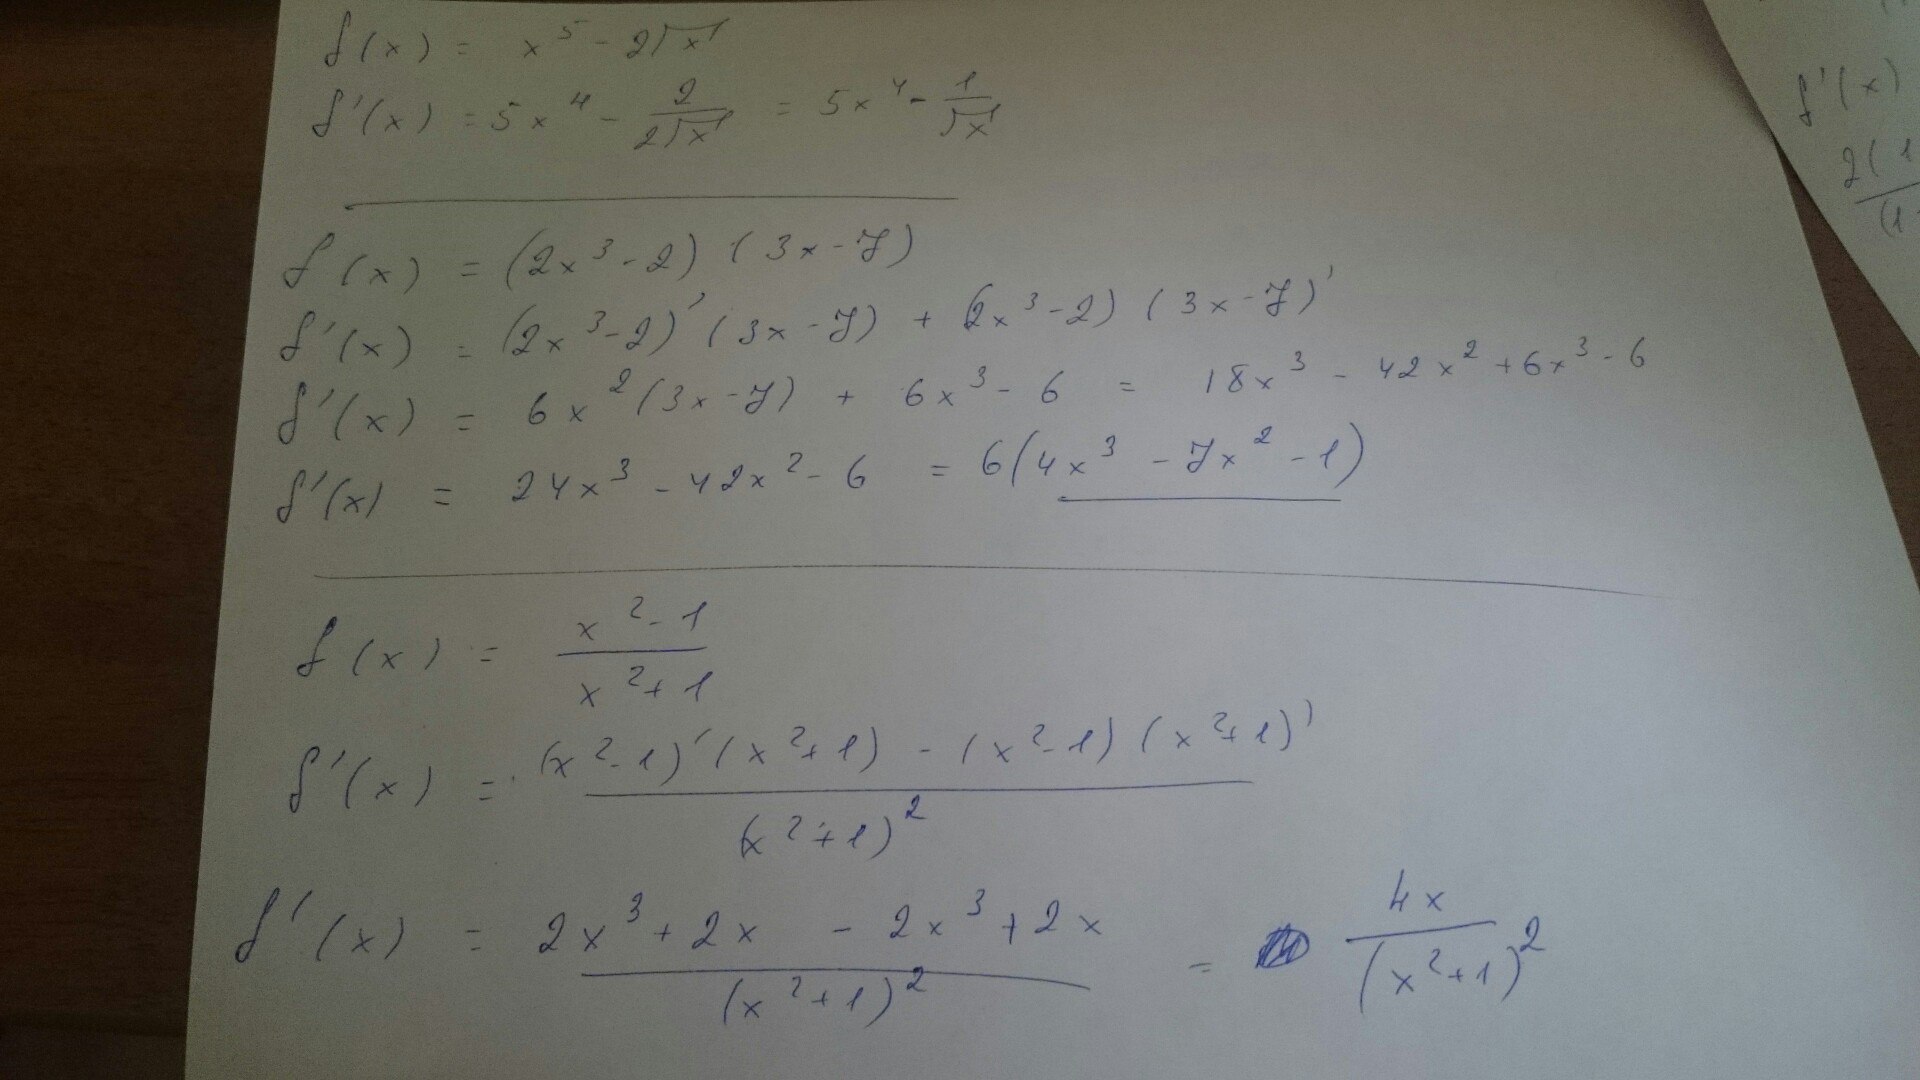 f(x) = x⁵ - 2√x
f'(x) = 5x⁴ - 2/(2√x) = 5x⁴ - 1/√x
f(x) = (2x³-2)(3x-7)
f'(x) = (2x³-2)'(3x-7) + (2x³-2)(3x-7)'
f'(x) = 6x²(3x-7) + 6x³-6 = 18x³ - 42x² + 6x³ - 6
f'(x) = 24x³ - 42x² - 6 = 6(4x³ - 7x² - 1)
f(x) = (x²-1)/(x²+1)
f'(x) = ((x²-1)'(x²+1) - (x²-1)(x²+1)')/(x²+1)²
f'(x) = (2x³+2x - 2x³+2x)/(x²+1)² = 4x/(x²+1)²
f'(x)
2(1
(1